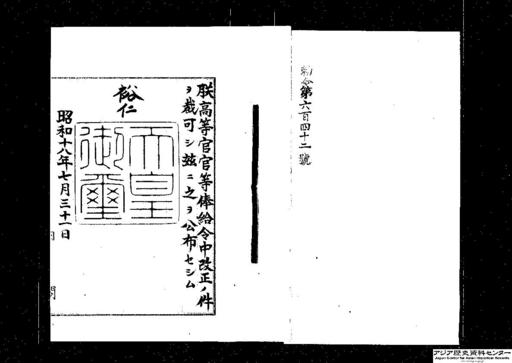 勅令第六百四十二號
朕高等官官等俸給令中改正ノ件
ヲ裁可シ茲ニ之ヲ公布セシム
裕仁
天皇
御璽
昭和十八年七月三十一日
アジア歴史資料センター
Japan Center for Asian Historical Records